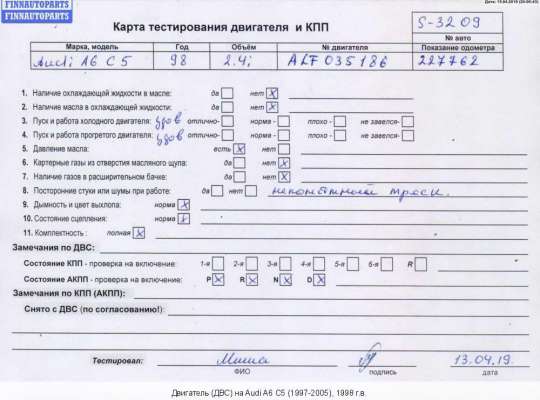 Дата: 15.04.2019 (20:00:43)
FINNAUTOPARTS
FINNAUTOPARTS
FINNAUTOPARTS
Карта тестирования двигателя и КПП
S-3209
№ авто
Марка, модель Год Объём № двигателя Показание одометра
Audi A6 C5 98 2.4i ALF 035186 227762
1. Наличие охлаждающей жидкости в масле: да нет x
2. Наличие масла в охлаждающей жидкости: да нет x
3. Пуск и работа холодного двигателя: удов отлично- норма - плохо - не завелся-
4. Пуск и работа прогретого двигателя: удов отлично- норма - плохо - не завелся-
5. Давление масла: есть x нет
6. Картерные газы из отверстия масляного щупа: да нет x
7. Наличие газов в расширительном бачке: да нет x
8. Посторонние стуки или шумы при работе: да нет непонятный треск.
9. Дымность и цвет выхлопа: норма x
10. Состояние сцепления: норма x
11. Комплектность : полная x
Замечания по ДВС:
Состояние КПП - проверка на включение: 1-я 2-я 3-я 4-я 5-я 6-я R
Состояние АКПП - проверка на включение: P x R x N x D x
Замечания по КПП (АКПП):
Снято с ДВС (по согласованию!):
Тестировал: Миша 13.04.19.
ФИО подпись дата
Двигатель (ДВС) на Audi A6 C5 (1997-2005), 1998 г.в.